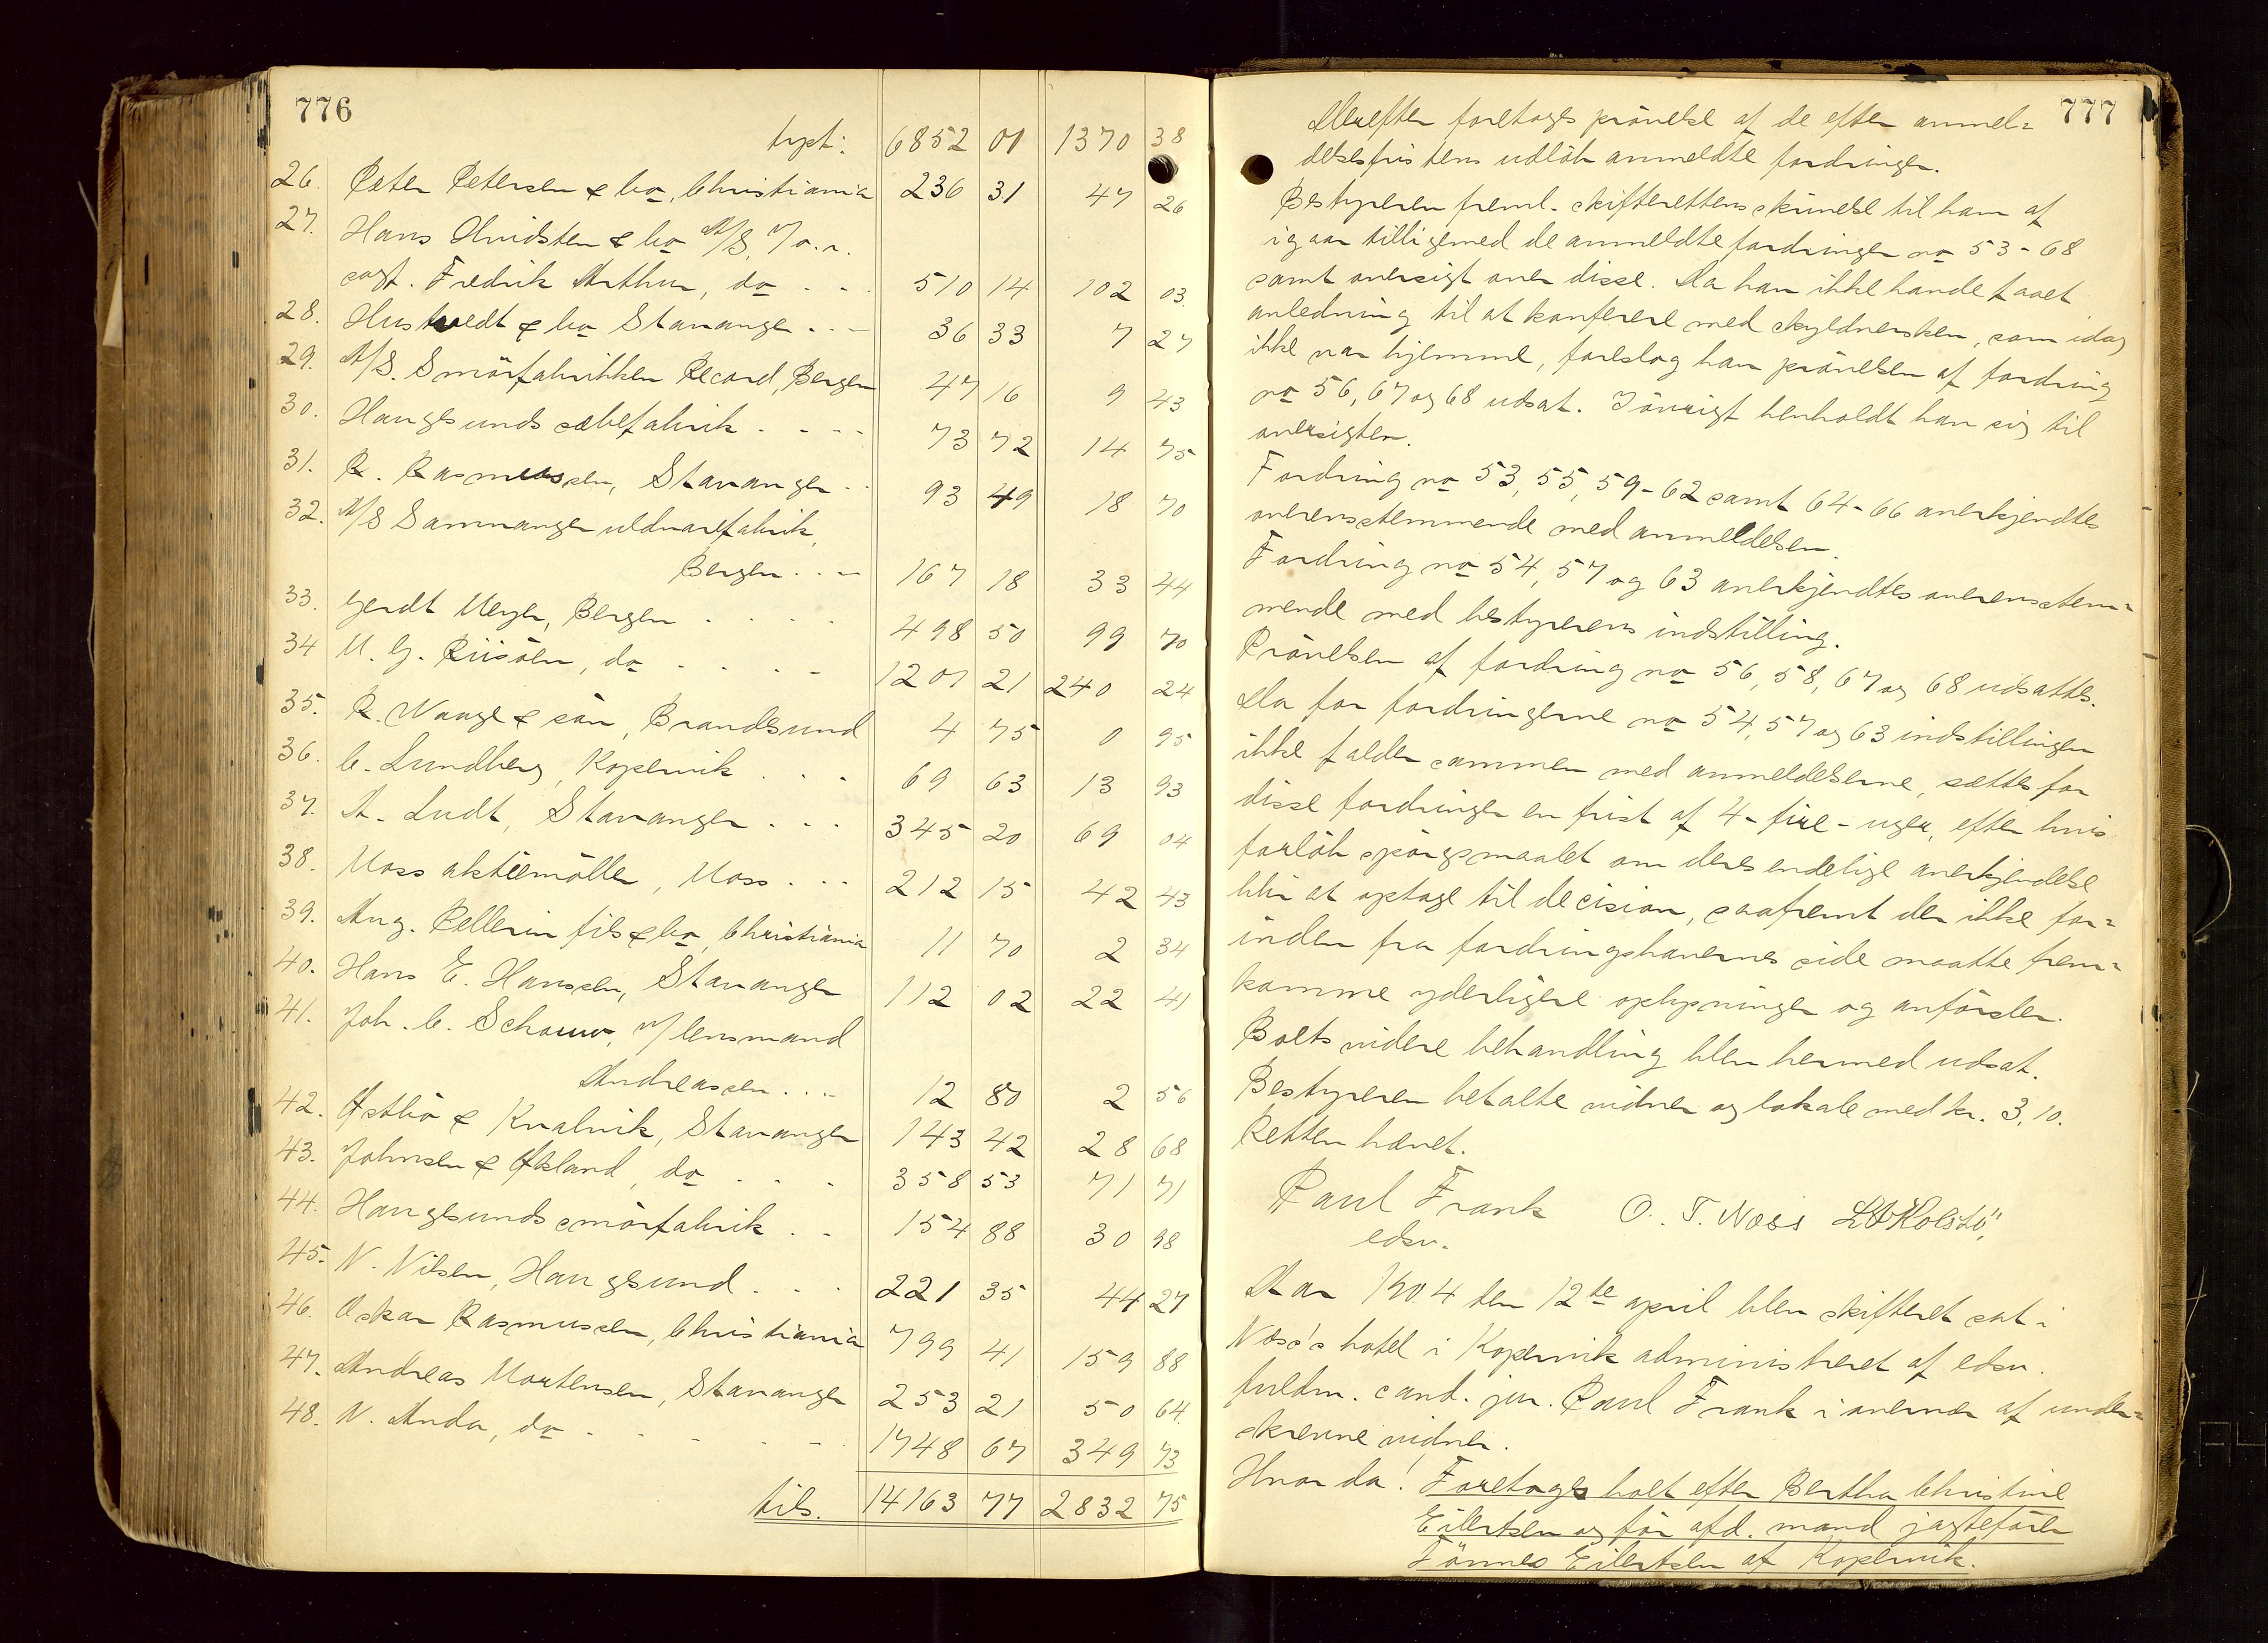 776
trpt: 6852 01 1370 38
26. Peter Petersen & co, Christiania 236 31 47 26
27. Hans Qvidsten & co A/S, v/ o.r.
sagf. Fredrik Arthur, do . . 510 14 102 03.
28. Hustvedt & co Stavanger . . . 36 33 7 27
29. A/S. Smörfabrikken Record, Bergen 47 16 9 43
30. Haugesunds sæbefabrik . . . . 73 72 14 75
31. R. Rasmussen, Stavanger . . 93 49 18 70
32. A/S Samnanger uldvarefabrik,
Bergen . . . 167 18 33 44
33. Gerdt Meyer, Bergen . . . . 498 50 99 70
34 M. G. Riisöen, do . . . . 1201 21 240 24
35. R. Waage & sön, Brandesund 4 75 0 95
36. C. Lundberg, Kopervik . . . 69 63 13 93
37. A. Ludt, Stavanger . . . 345 20 69 04
38. Moss aktiemöller, Moss . . . 212 15 42 43
39. Aug. Pellerin fils & co, Christiania 11 70 2 34
40. Hans E. Hanssen, Stavanger 112 02 22 41
41. Joh. C. Schouw, v/ lensmand
Andreassen . . . 12 80 2 56
42. Östbö & Kvalvik, Stavanger 143 42 28 68
43. Johnsen & Öksland, do . . . 358 53 71 71
44. Haugesunds smörfabrik . . 154 88 30 98
45. N. Nilsen, Haugesund . . . 221 35 44 27
46. Oskar Rasmussen, Christiania 799 41 159 88
47. Andreas Mortensen, Stavanger 253 21 50 64.
48. N. Anda, do . . . . . 1748 67 349 73
tils. 14163 77 2832 75
777
Derefter foretoges prövelse af de efter anmel=
delsesfristens udlöb anmeldte fordringer.
Bestyreren freml. skifterettens skrivelse til ham af
igaar tilligemed de anmeldte fordringer no 53-68
samt oversigt over disse. Da han ikke havde faaet
anledning til at konferere med skyldnersken, som idag
ikke var hjemme, foreslog han prövelsen af fordring
no 56, 67 og 68 udsat. Iövrigt henholdt han sig til
oversigten.
Fordring no 53, 55, 59-62 samt 64-66 anerkjendtes
overensstemmende med anmeldelsen.
Fordring no 54, 57 og 63 anerkjendtes overensstem=
mende med bestyrerens indstilling.
Prövelsen af fordring no 56, 58, 67 og 68 udsattes.
Da for fordringerne no 54, 57 og 63 indstillingen
ikke falder sammen med anmeldelserne, sættes for
disse fordringer en frist af 4-fire-uger, efter hvis
forlöb spörgsmaalet om deres endelige anerkjendelse
blir at optage til decision, saafremt der ikke for=
inden fra fordringshavernes side maatte frem=
komme yderligere oplysninger og anförsler.
Boets videre behandling blev hermed udsat.
Bestyreren betalte vidner og lokale med kr. 3,10.
Retten hævet.
Paul Frank O. T. Næss L O Kolstö,
edsv.
Aar 1904 den 12te april blev skifteret sat i
Næss's hotel i Kopervik administreret af edsv.
fuldm. cand. jur. Paul Frank i overvær af under=
skrevne vidner.
Hvor da! Foretoges boet efter Bertha Christine
Eilertsen og för afd. mand jagtefören
Tönnes Eilertsen af Kopervik.